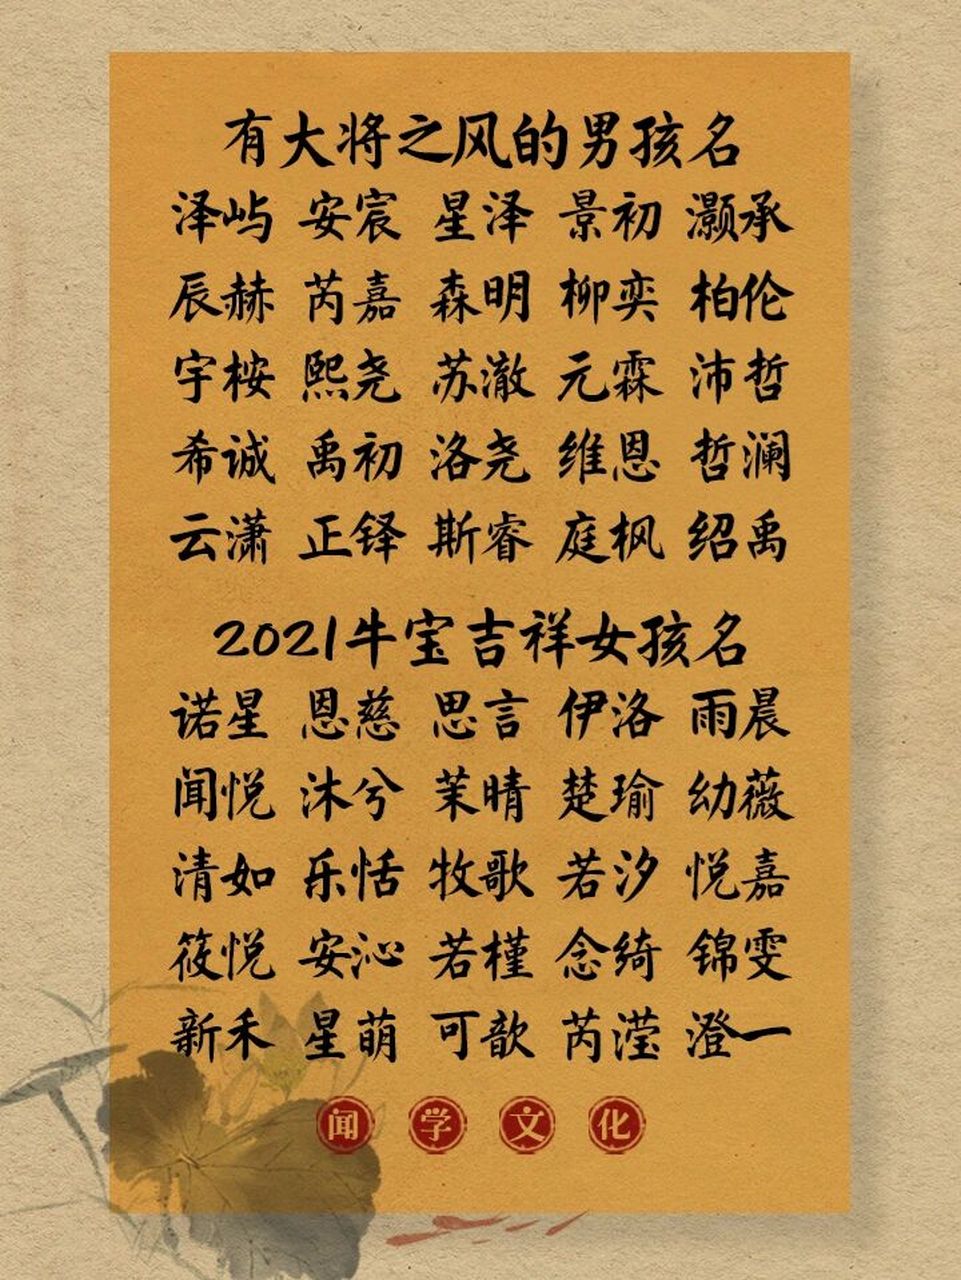 有大将之风的男孩名
泽屿 安宸 星泽 景初 灏承
辰赫 芮嘉 森明 柳奕 柏伦
宇桉 熙尧 苏澈 元霖 沛哲
希诚 禹初 洛尧 维恩 哲澜
云潇 正铎 斯睿 庭枫 绍禹
2021牛宝吉祥女孩名
诺星 恩慈 思言 伊洛 雨晨
闻悦 沐兮 茉晴 楚瑜 幼薇
清如 乐恬 牧歌 若汐 悦嘉
筱悦 安沁 若槿 念绮 锦雯
新禾 星萌 可歆 芮滢 澄一
闻学文化